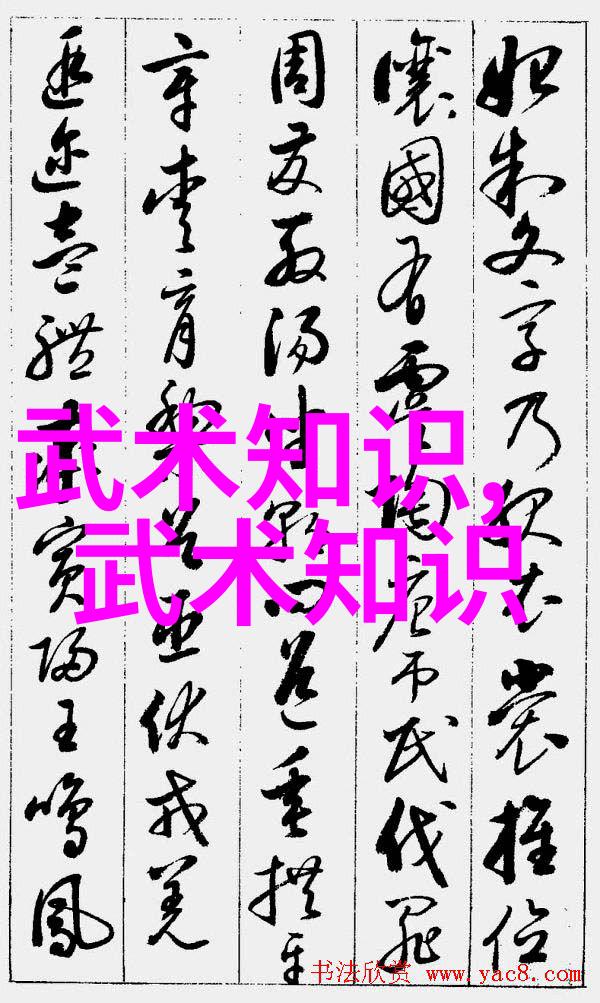 始制文字乃服衣裳推位
讓國有虞陶唐吊民伐罪
周發殷湯坐朝問道垂拱平
章愛育黎首臣伏戎羌
遐邇壹體率賓歸王鳴鳳
武术知识,
武术知识
书法欣赏 www.yac8.com